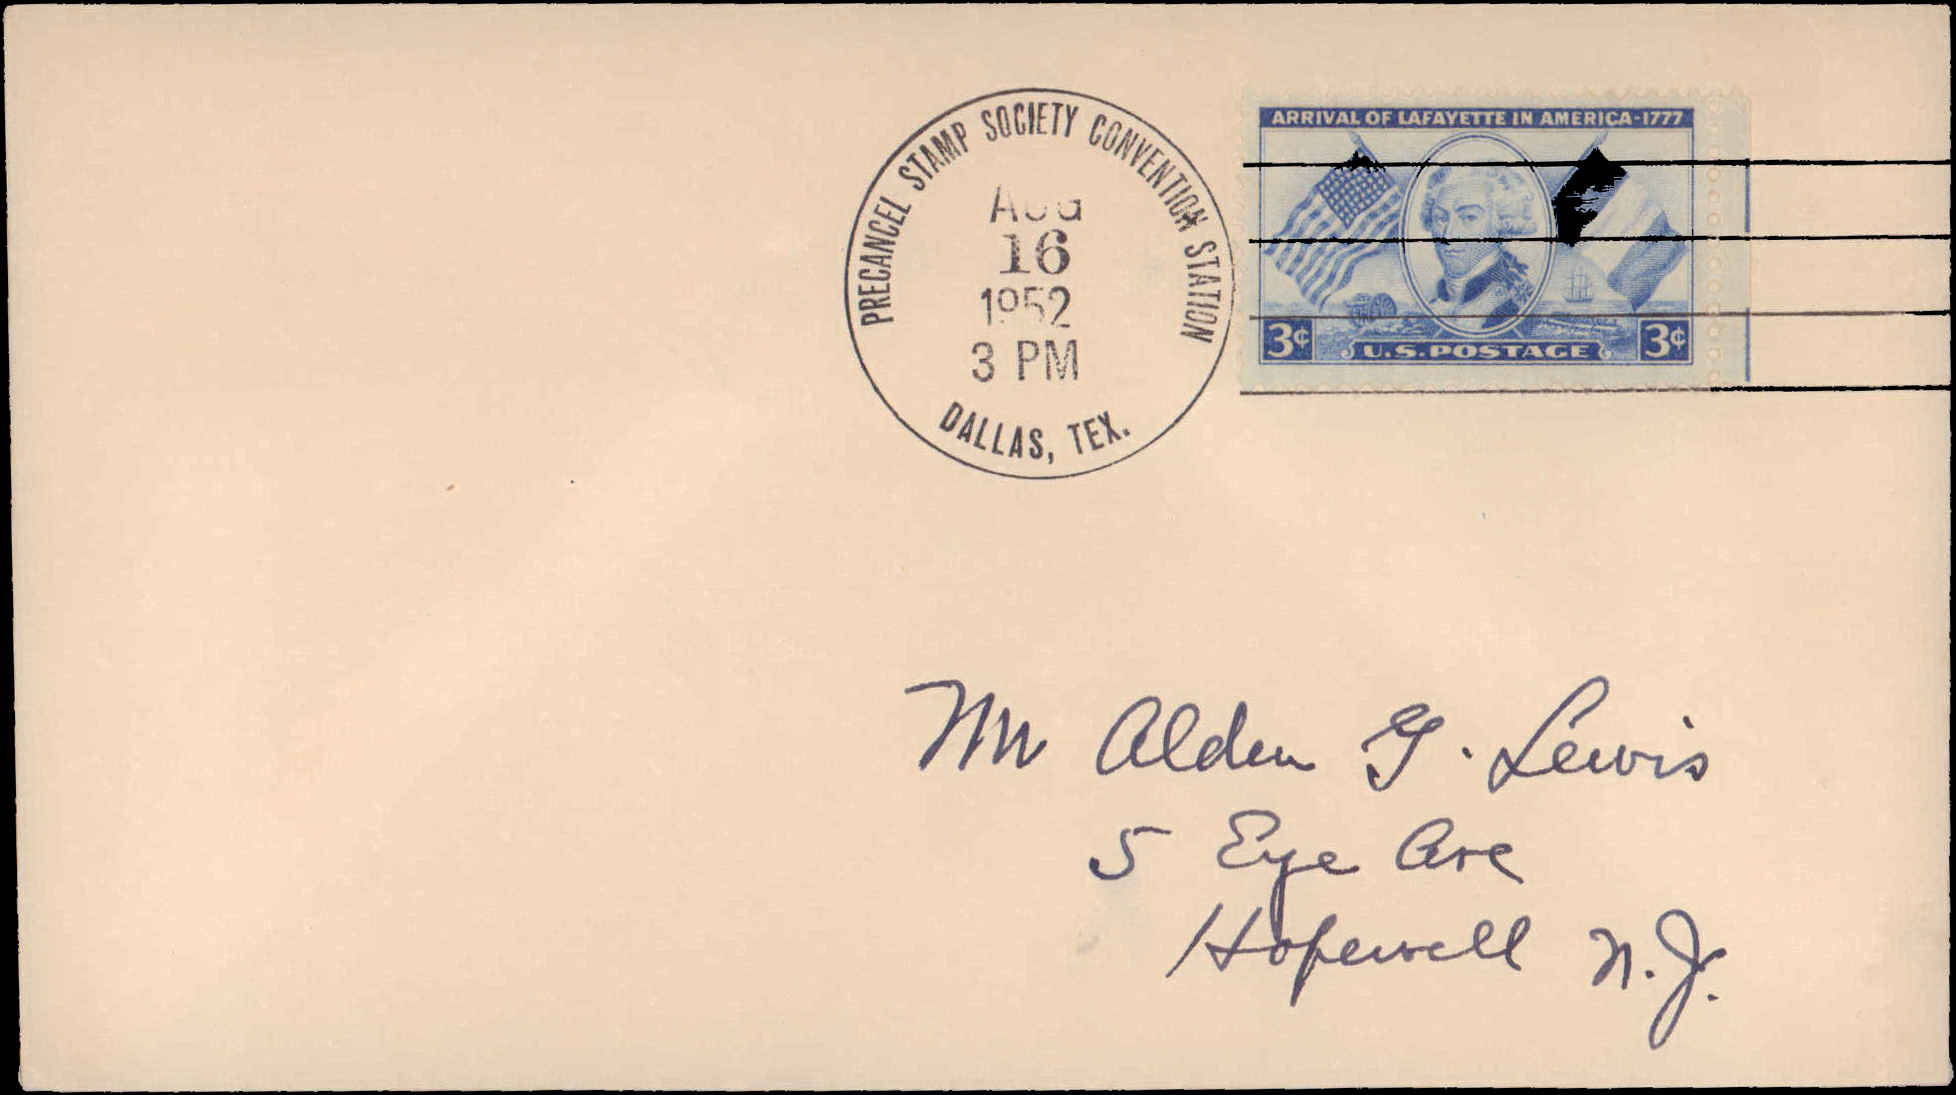 PRECANCEL STAMP SOCIETY CONVENTION STATION
AUG
16
1952
3 PM
DALLAS, TEX.
ARRIVAL OF LAFAYETTE IN AMERICA-1777
3¢ U.S. POSTAGE 3¢
Mr Alden G. Lewis
5 Eye Ave
Hopewell N.J.